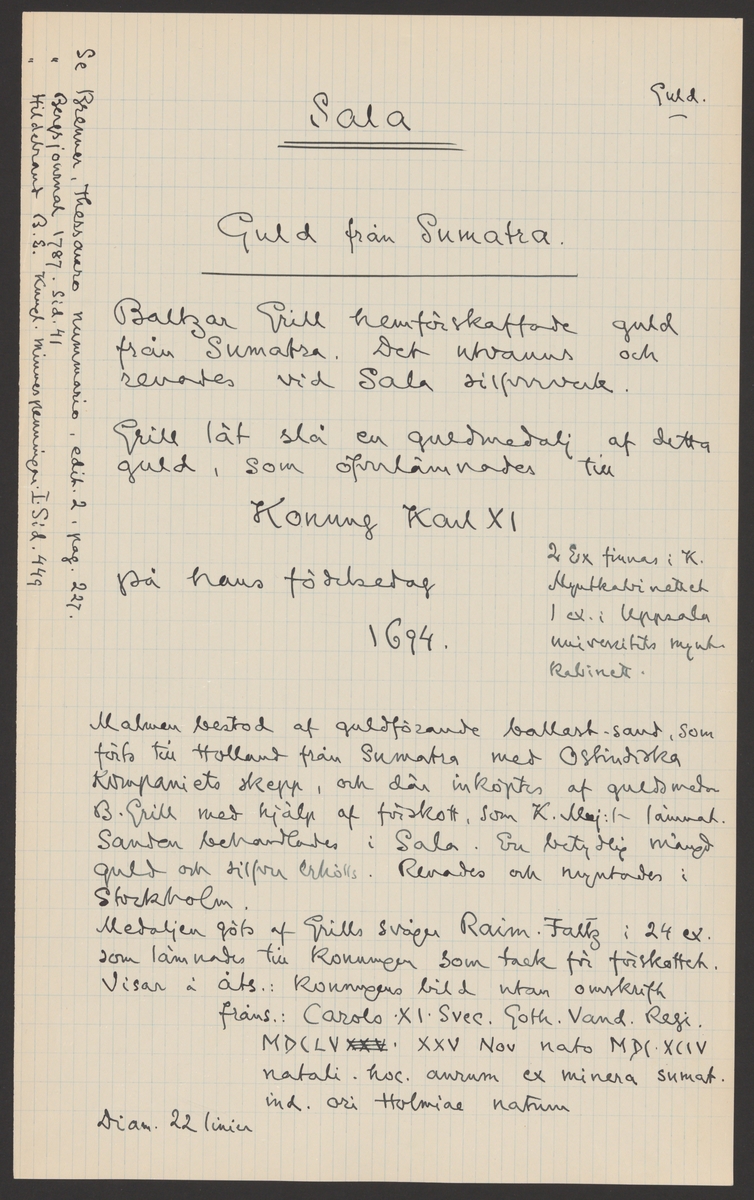 Guld.
Sala
Guld från Sumatra.
Baltzar Grill hemförskaffade guld
från Sumatra. Det utvanns och
renades vid Sala silfververk.
Grill lät slå en guldmedalj af detta
guld, som öfverlämnades till
Konung Karl XI
på hans födelsedag
1694.
2 Ex finnas i K.
Myntkabinettet
1 ex. i Uppsala
universitets mynt-
kabinett.
Malmen bestod af guldförande ballast-sand, som
förts till Holland från Sumatra med Ostindiska
Kompaniets skepp, och där inköptes af guldsmeden
B. Grill med hjälp af förskott, som K. Maj:t lämnat.
Sanden behandlades i Sala. En betydlig mängd
guld och silfver erhölls. Renades och myntades i
Stockholm.
Medaljen göts af Grills svåger Raim. Faltz i 24 ex.
som lämnades till konungen som tack för förskottet.
Visar å åts.: konungens bild utan omskrift
fråns.: Carolo ·XI· Svec. Goth. Vand. Regi.
MDCLV XXV. XXV Nov nato MDC·XCIV
natali. hoc. aurum ex minera sumat.
ind. ori Holmiae natum
Diam. 22 linier
Se Brenner, Thessauro nummario, edit. 2, pag. 227.
" Bergsjournal 1787. Sid. 41
" Hildebrand B.E. Kungl. minnespenningar. I. Sid. 449